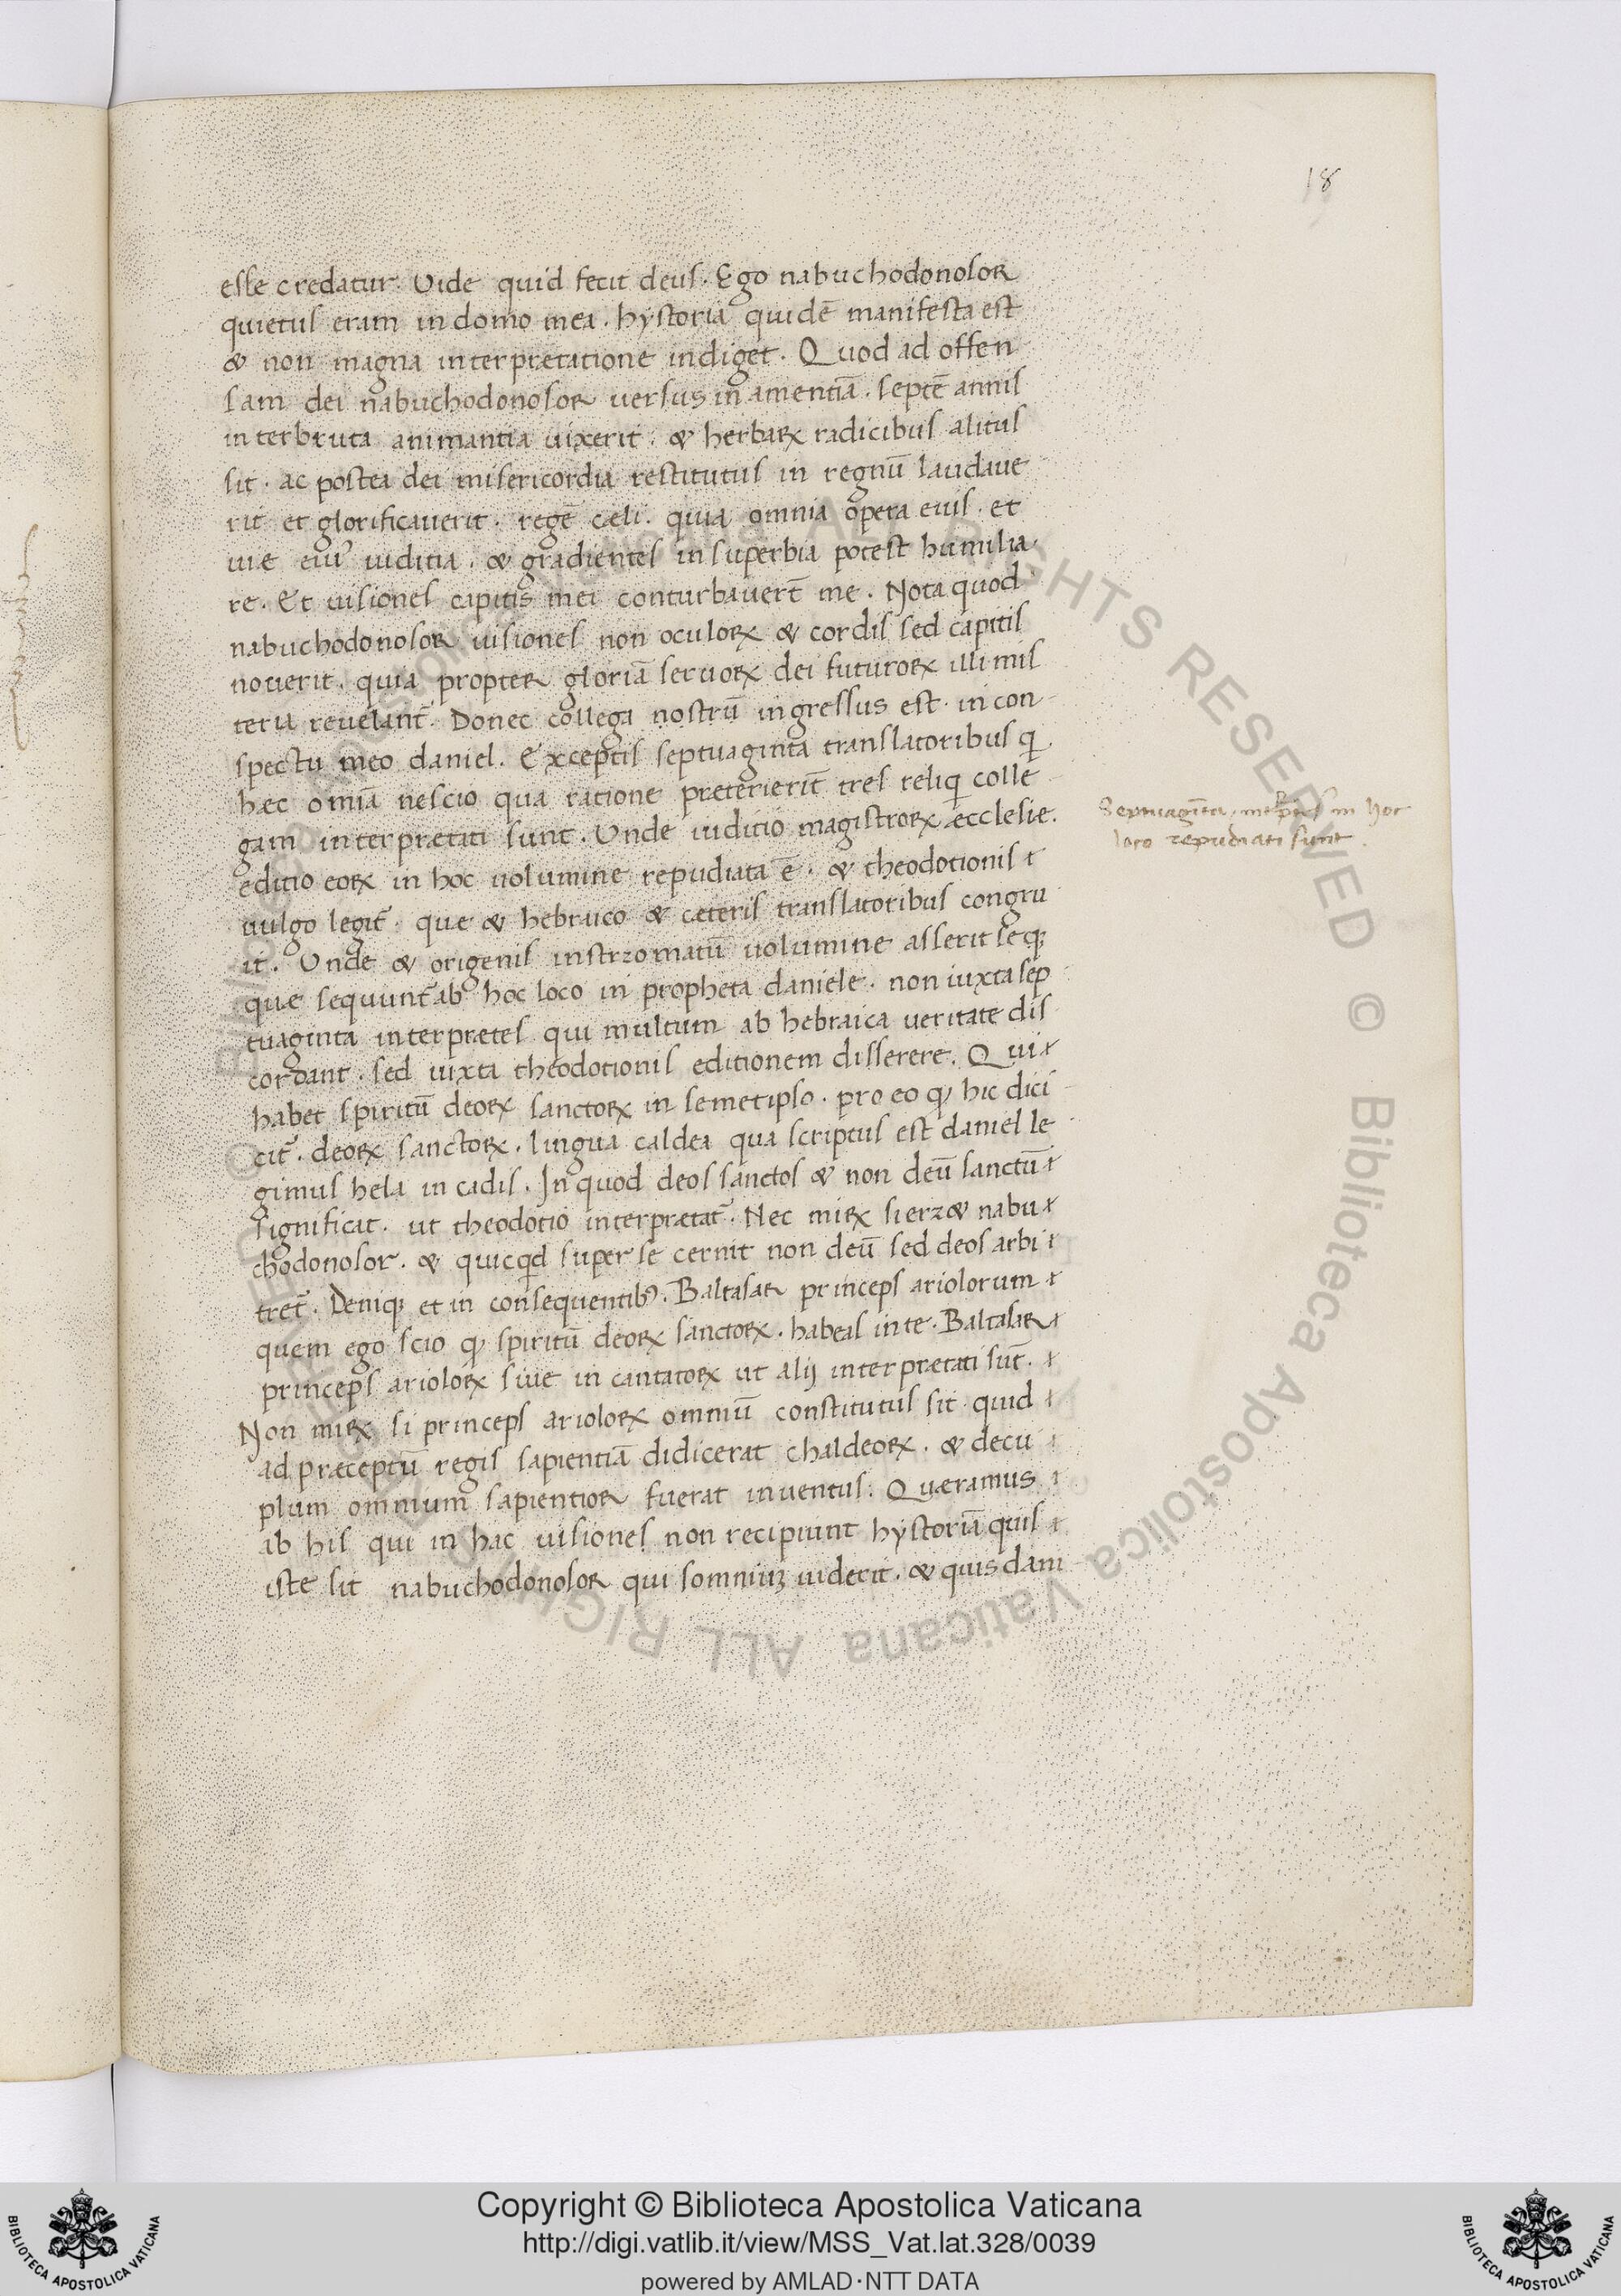 18
esse credatur. Vide quid fecit deus. Ego nabuchodonosor
quietus eram in domo mea. hystoria quidē manifesta est
& non magna interpretatione indiget. Quod ad offen
sam dei nabuchodonosor uersus in amentiā. septē annis
inter bruta animantia uixerit. & herbaꝝ radicibus alitus
sit. ac postea dei misericordia restitutus in regnū laudaue
rit et glorificauerit. regē cæli. quia omnia opera eius. et
uie eiuꝰ iuditia. & gradientes in superbia potest humilia
re. Et uisiones capitis mei conturbauert̄ me. Nota quod
nabuchodonosor uisiones non oculoꝝ & cordis sed capitis
nouerit. quia propter gloriā seruoꝝ dei futuroꝝ illi mis
teria reuelant̄. Donec collega nostrū ingressus est. in con
spectu meo daniel. Exceptis septuaginta translatoribus qi
hæc omīa nescio qua ratione preterierit̄ tres reliqi colle
gam interpretati sunt. Vnde iuditio magistroꝝ ecclesie.
editio eoꝝ in hoc uolumine repudiata ē. & theodotionis
uulgo legit̄. que & hebraico & ceteris translatoribus congru
it. Vnde & origenis in strzomatū uolumine asserit seqꝫ
que sequunt̄ ab hoc loco in propheta daniele. non iuxta sep
tuaginta interpretes qui multum ab hebraica ueritate dis
cordant. sed iuxta theodotionis editionem disserere. Qui
habet spiritū deoꝝ sanctoꝝ in semetipso. pro eo qꝫ hic dici
cit̄. deoꝝ sanctoꝝ. lingua caldea qua scriptus est daniel le
gimus hela in cadis. In quod deos sanctos & non deū sanctū
significat. ut theodotio interpretat̄. Nec miꝝ si erz& nabu
chodonosor. & quicqd super se cernit non deū sed deos arbi
tret̄. Deniqꝫ et in consequentibꝰ. Baltasar princeps ariolorum
quem ego scio qꝫ spiritū deoꝝ sanctoꝝ. habeas in te. Baltasar
princeps arioloꝝ siue in cantatoꝝ ut alij interpretati sut̄.
Non miꝝ si princeps arioloꝝ omniū constitutus sit quid
ad preceptū regis sapientiā didicerat chaldeoꝝ. & decu
plum omnium sapientior fuerat inuentus. Queramus
ab his qui in hac uisiones non recipiunt hystoriā quis
iste sit nabuchodonosor qui somniuꝫ uiderit. & quis dani
Septuagīta, int̄ptes in hoc
loco repudiati sunt.
© Biblioteca Apostolica Vaticana ALL RIGHTS RESERVED
Copyright © Biblioteca Apostolica Vaticana
http://digi.vatlib.it/view/MSS_Vat.lat.328/0039
powered by AMLAD·NTT DATA
BIBLIOTECA APOSTOLICA VATICANA
BIBLIOTECA APOSTOLICA VATICANA